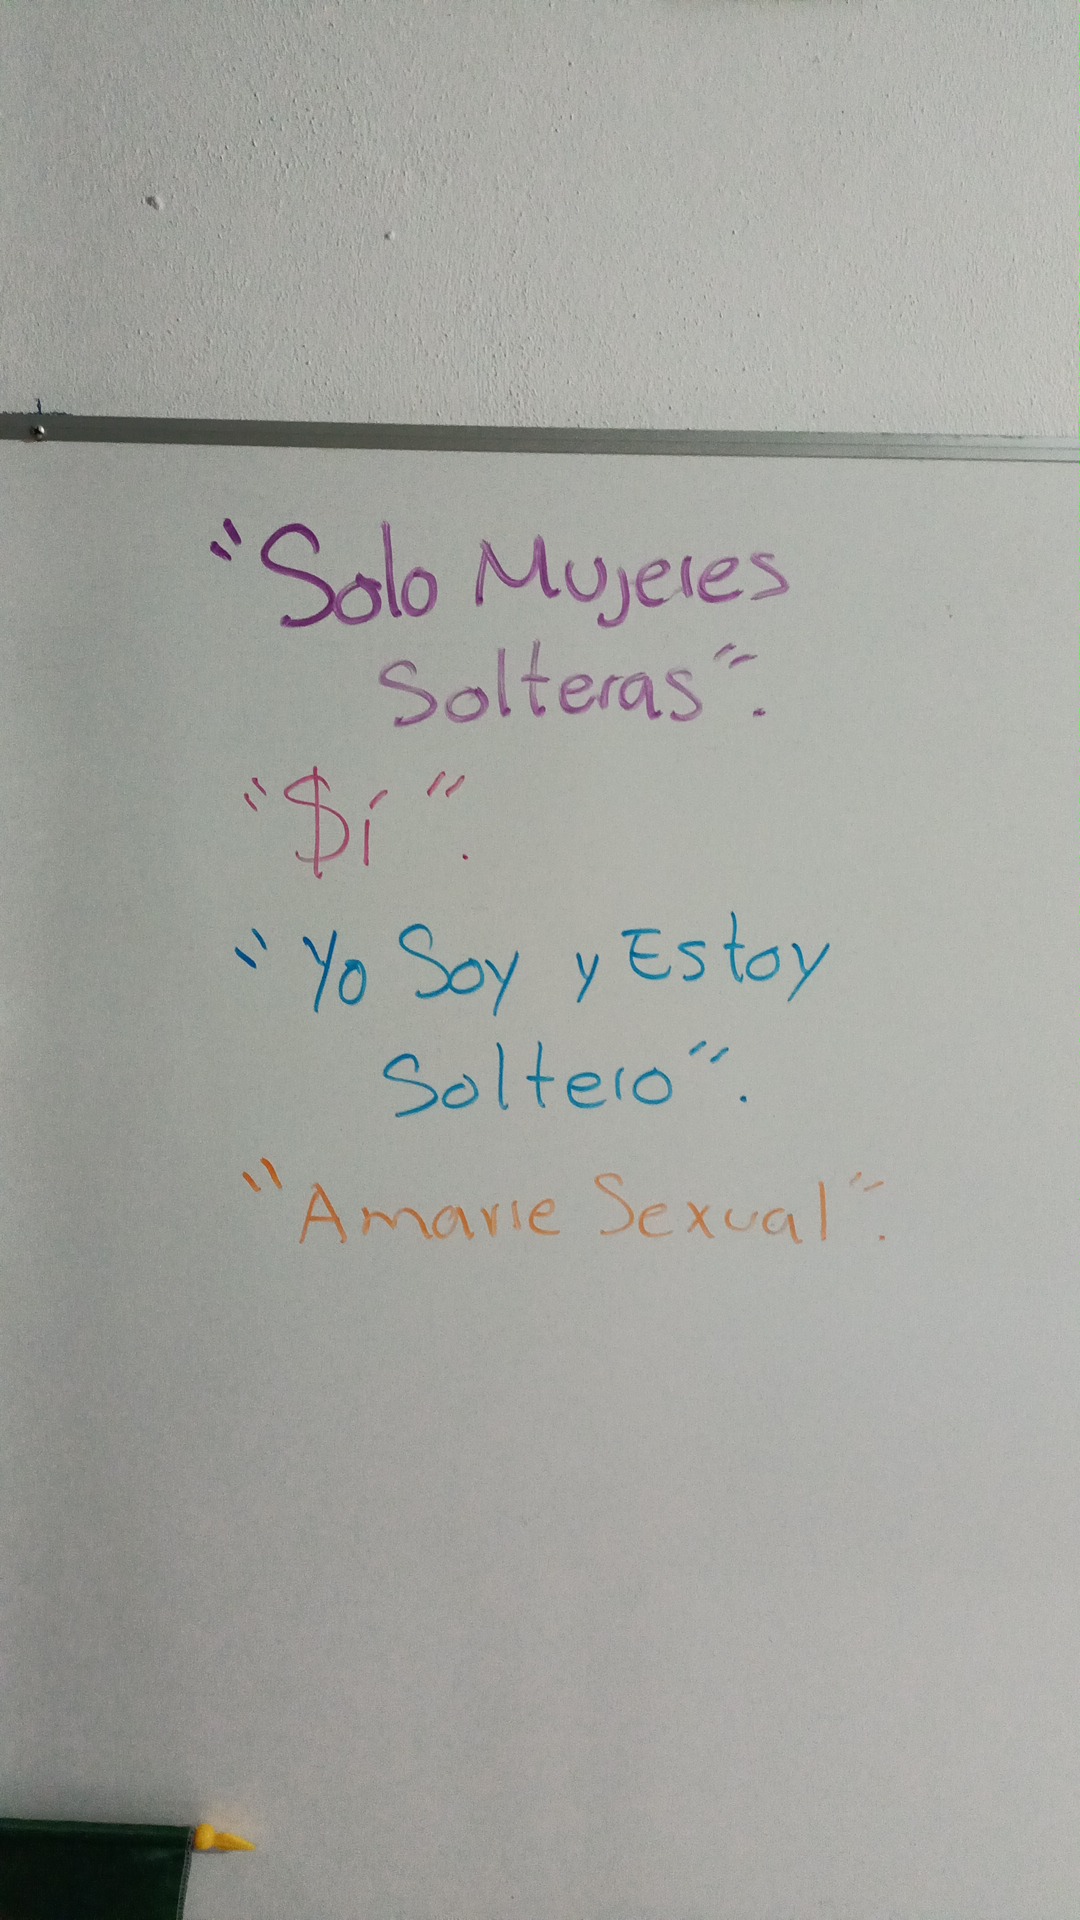 "Solo Mujeres
Solteras".
"$í".
"Yo Soy y Estoy
Soltero".
"Amarre Sexual".